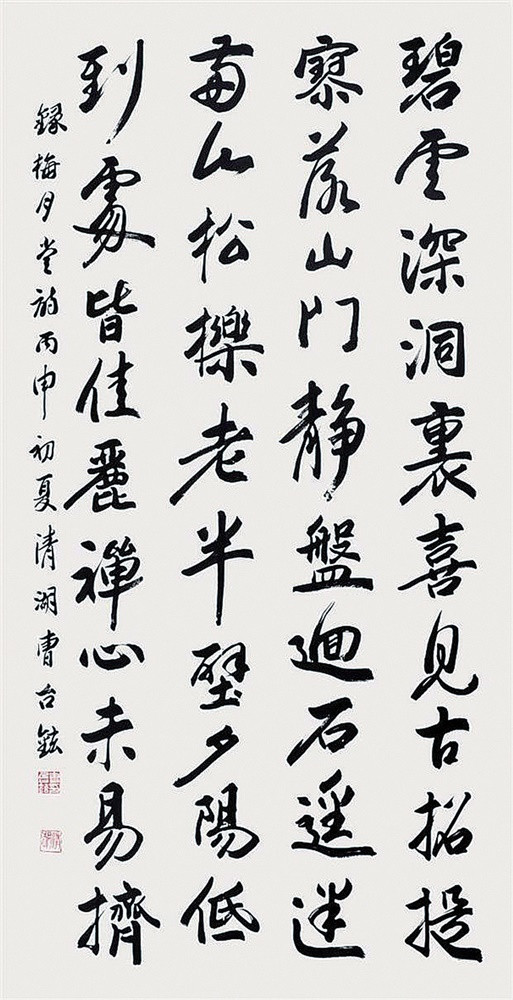 碧雲深洞裏喜見古招提
寥落山門靜盤迴石逕迷
山松櫟老半壁夕陽低
到處皆佳麗禪心未易擠
錄梅月堂詩丙申初夏清湖曹台鉉